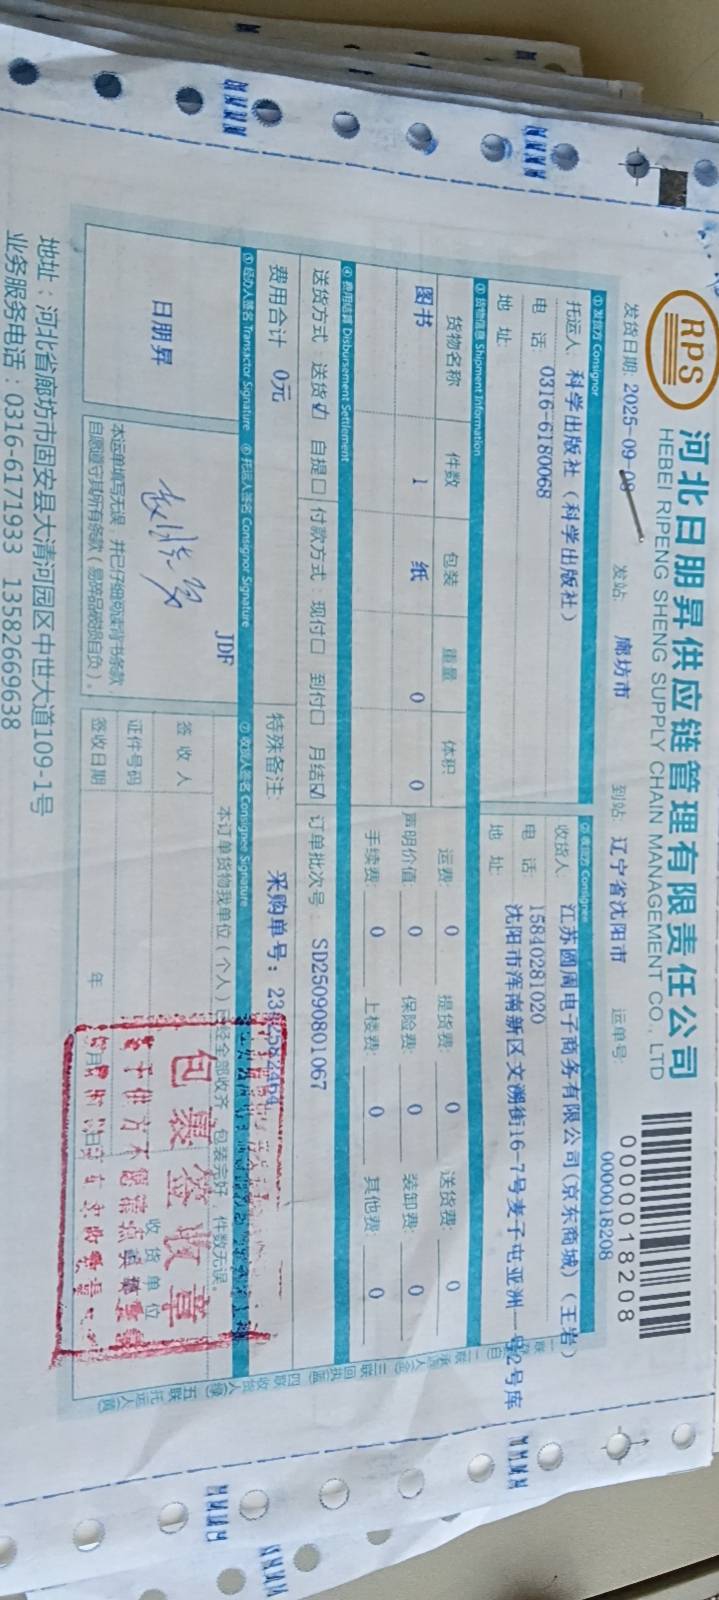 RPS
河北日朋昇供应链管理有限责任公司
HEBEI RIPENG SHENG SUPPLY CHAIN MANAGEMENT CO., LTD
0000018208
0000018208
发货日期: 2025-09-08 发站: 廊坊市 到站: 辽宁省沈阳市 运单号:
① 发货方 Consignor
托运人: 科学出版社（科学出版社）
电 话: 0316-6180068
地 址:
② 收货方 Consignee
收货人: 江苏圆周电子商务有限公司(京东商城)(王岩)
电 话: 15840281020
地 址: 沈阳市浑南新区文溯街16-7号麦子屯亚洲一号2号库
③ 货物信息 Shipment Information
货物名称 件数 包装 重量 体积
图书 1 纸 0 0
运费: 0 提货费: 0 送货费: 0
声明价值: 0 保险费: 0 装卸费: 0
手续费: 0 上楼费: 0 其他费: 0
④ 费用结算 Disbursement Settlement
送货方式: 送货☑ 自提☐ 付款方式: 现付☐ 到付☐ 月结☑ 订单批次号: SD25090801067
费用合计 0元 特殊备注: 采购单号:
⑤ 经办人签名 Transactor Signature ⑥ 托运人签名 Consignor Signature ⑦ 收货人签名 Consignee Signature
日朋昇
JDF
本运单填写无误，并已仔细阅读背书条款，
自愿遵守其所有条款（易碎品破损自负）。
本订单货物我单位（个人）已经全部收齐，包装完好，件数无误。
签 收 人
证件号码
签收日期 年 月 日
收货单位
包裹签收章
地址：河北省廊坊市固安县大清河园区中世大道109-1号
业务服务电话：0316-6171933 13582669638